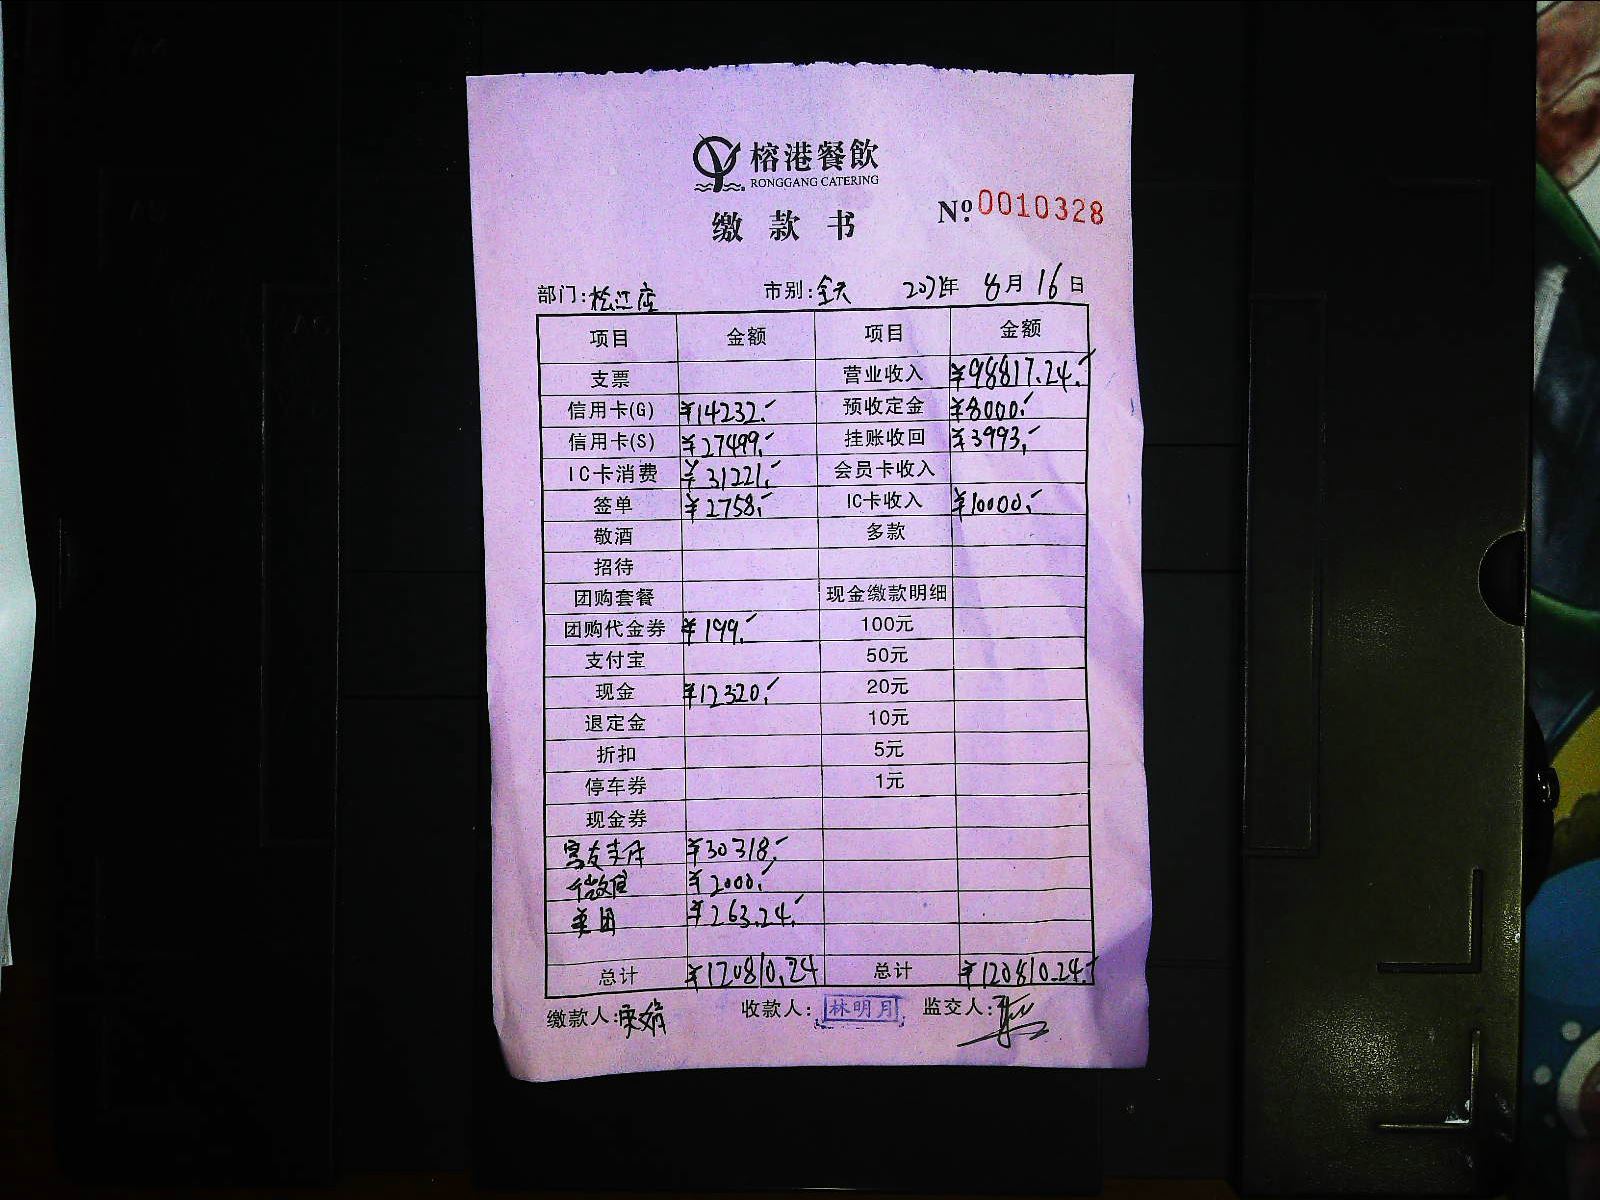 榕港餐飲
RONGGANG CATERING
缴款书
Nº:0010328
部门:松江店 市别:全天 年 8月16日
项目 金额 项目 金额
支票 营业收入 ¥98817.24.
信用卡(G) ¥14232. 预收定金 ¥8000.
信用卡(S) ¥27499. 挂账收回 ¥3993.
IC卡消费 ¥31221. 会员卡收入
签单 ¥2758. IC卡收入 ¥10000.
敬酒 多款
招待
团购套餐 现金缴款明细
团购代金券 ¥199. 100元
支付宝 50元
现金 ¥12320. 20元
退定金 10元
折扣 5元
停车券 1元
现金券
支付 ¥30318.
微信 ¥2000.
美团 ¥263.24.
总计 ¥120810.24 总计 ¥120810.24.
缴款人: 收款人:林明月 监交人: